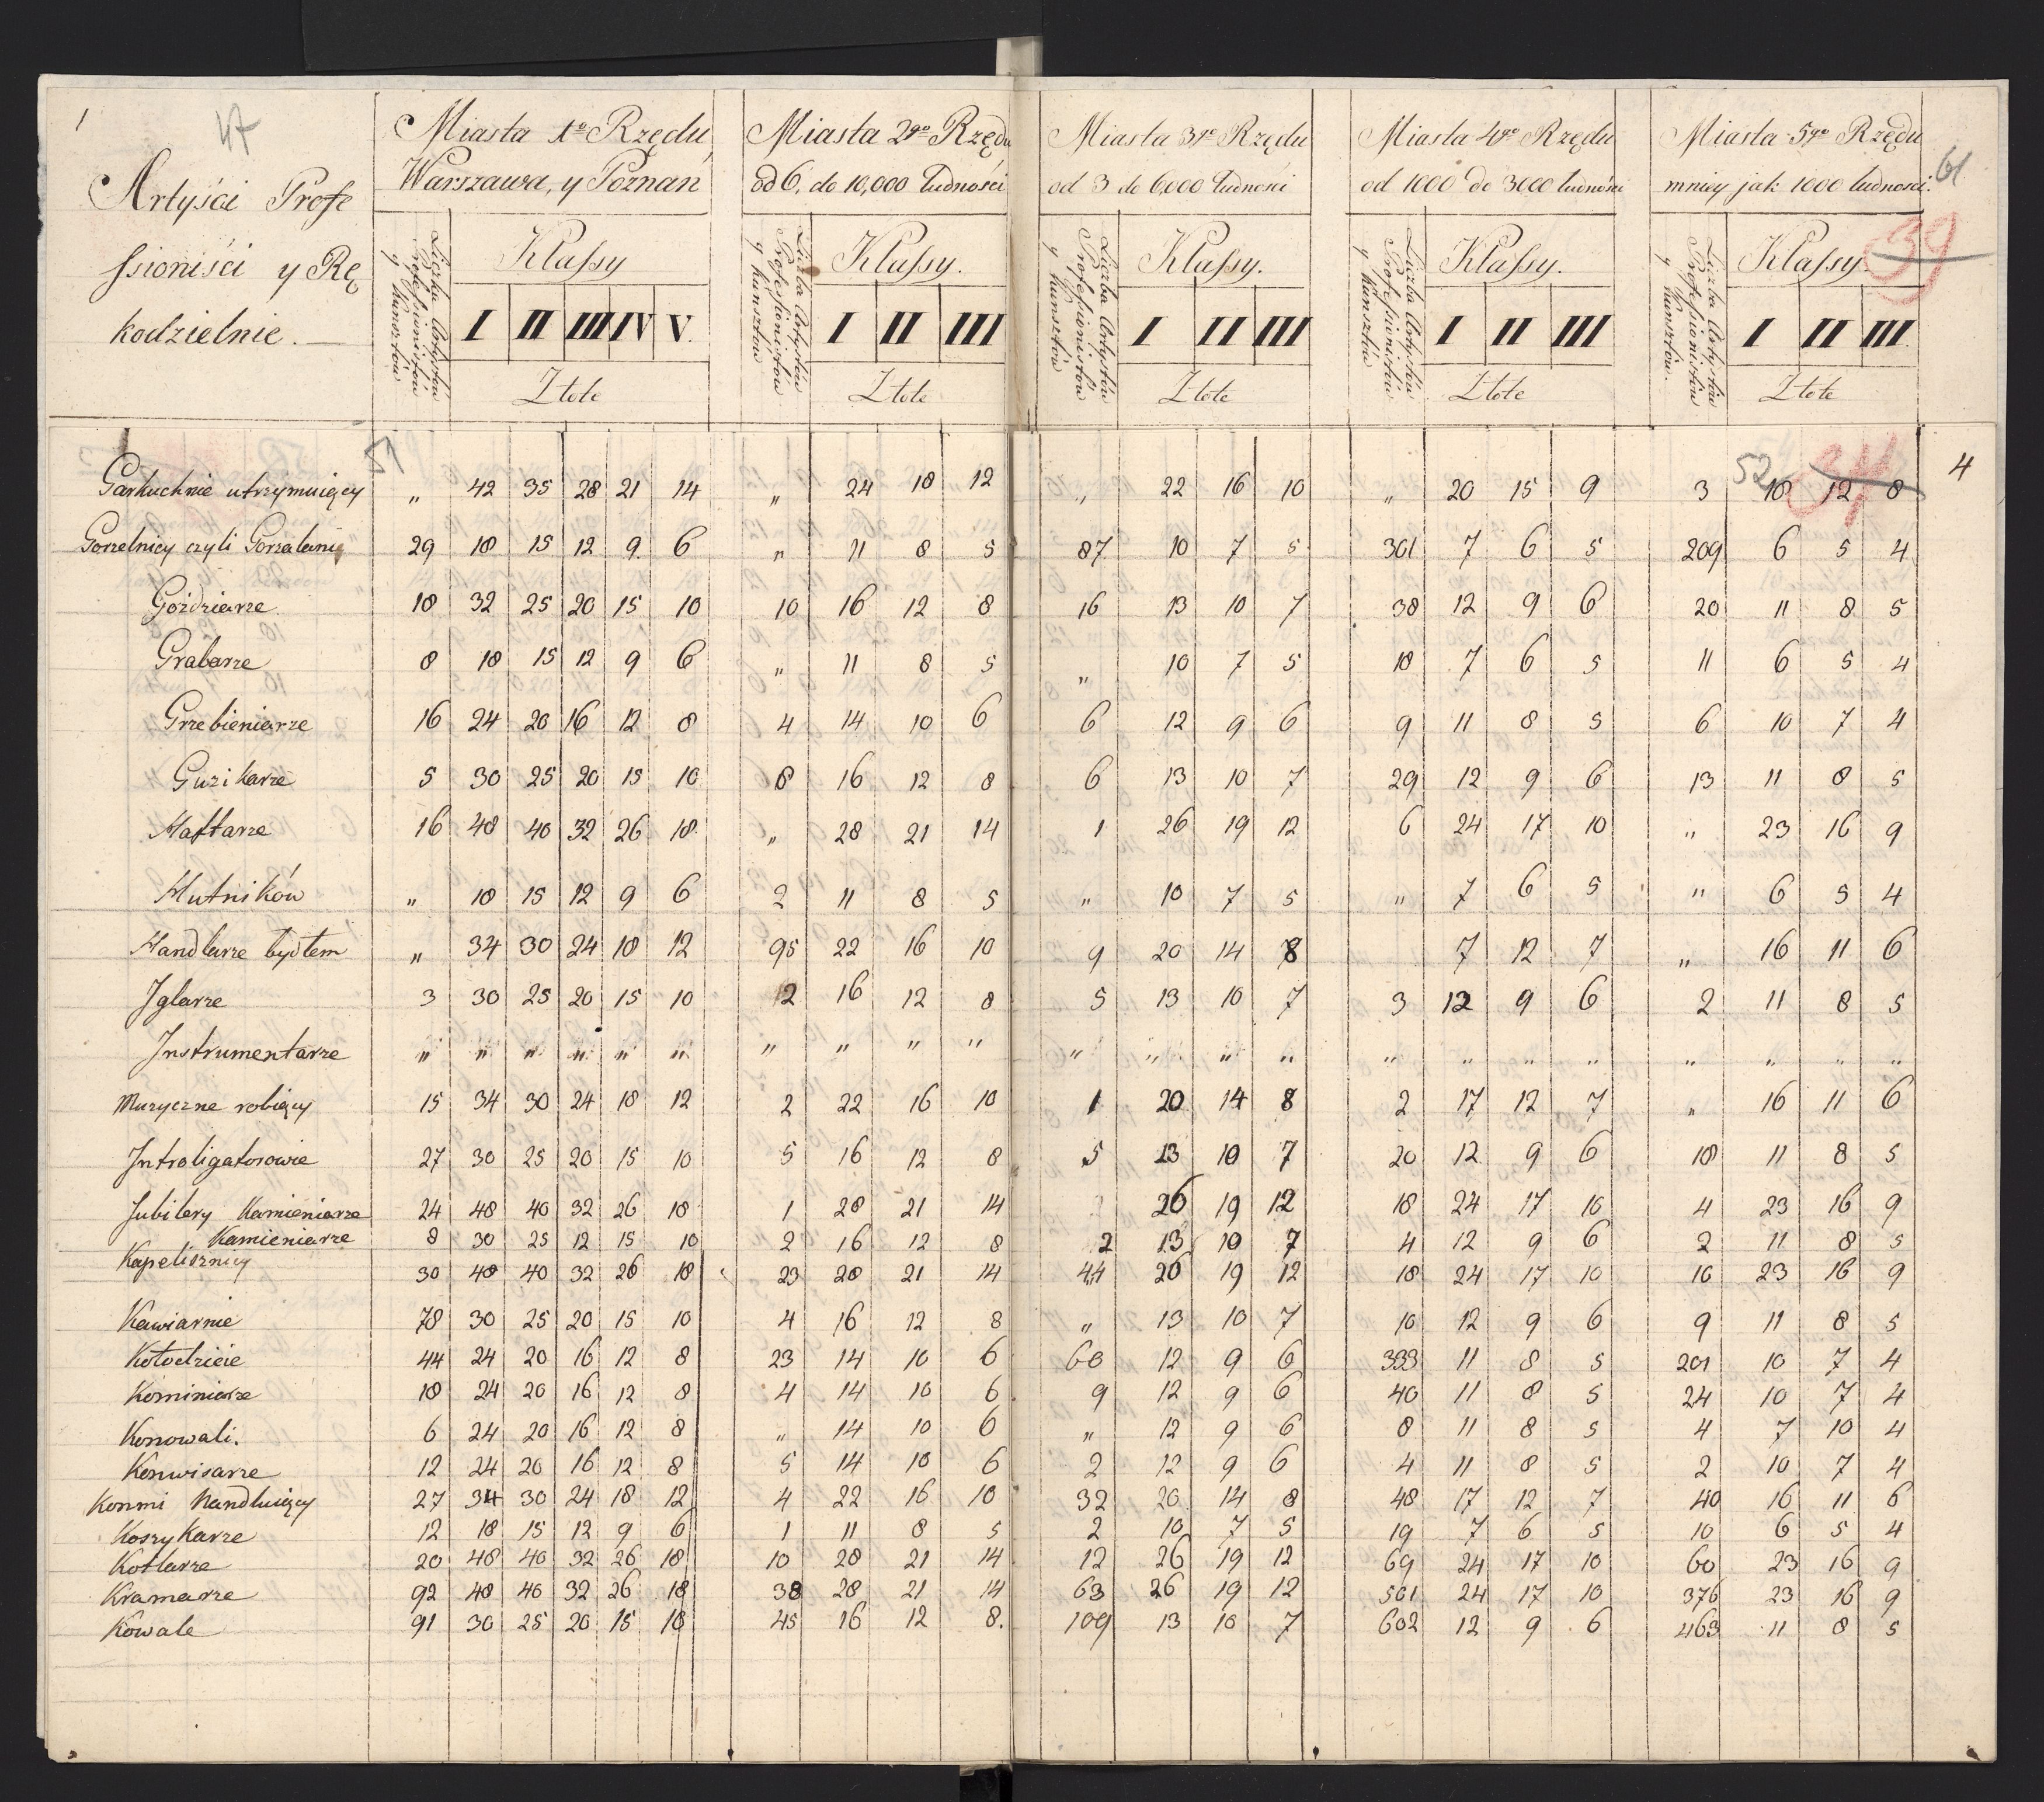 1 47
Miasta 1o Rzędu Miasta 2go Rzędu Miasta 3go Rzędu Miasta 4go Rzędu Miasta 5go Rzędu
Warszawa, y Poznań od 6. do 10,000 ludności od 3 do 6,000 ludności od 1000 do 3000 ludności mniey jak 1000 ludności. 61
Artyści Profe
ssioniści y Rę
kodzielnie. —
Liczba Artystów Professionistów y Kunsztów Klassy Liczba Artystów Professionistów y Kunsztów Klassy. Liczba Artystów Professionistów y Kunsztów Klassy. Liczba Artystów Professionistów y Kunsztów Klassy. Liczba Artystów Professionistów y Kunsztów. Klassy. 39
I II III IV V. I II III I II III I II III I II III.
Złote Złote Złote Złote Złote
51 52 34 4
Garkuchnie utrzymuięcy " 42 35 28 21 14 " 24 18 12 " 22 16 10 " 20 15 9 3 18 12 8
Gorzelnicy czyli Gorzalanię 29 18 15 12 9 6 " 11 8 5 87 10 7 5 301 7 6 5 209 6 5 4
Goździarze 18 32 25 20 15 10 10 16 12 8 16 13 10 7 38 12 9 6 20 11 8 5
Grabarze 8 18 15 12 9 6 " 11 8 5 " 10 7 5 18 7 6 5 11 6 5 4
Grzebieniarze 16 24 20 16 12 8 4 14 10 6 6 12 9 6 9 11 8 5 6 10 7 4
Guzikarze 5 30 25 20 15 10 8 16 12 8 6 13 10 7 29 12 9 6 13 11 8 5
Haftarze 16 48 40 32 26 18 " 28 21 14 1 26 19 12 6 24 17 10 " 23 16 9
Hutników " 18 15 12 9 6 2 11 8 5 " 10 7 5 " 7 6 5 " 6 5 4
Handlarze bydłem " 34 30 24 18 12 95 22 16 10 9 20 14 8 7 12 7 " 16 11 6
Jglarze 3 30 25 20 15 10 12 16 12 8 5 13 10 7 3 12 9 6 2 11 8 5
Jnstrumentarze " " " " " " " " " " " " " " " " " " " " " "
Muzyczne robięcy 15 34 30 24 18 12 2 22 16 10 1 20 14 8 2 17 12 7 " 16 11 6
Jntroligatorowie 27 30 25 20 15 10 5 16 12 8 5 13 10 7 20 12 9 6 18 11 8 5
Jubilery Kamieniarze 24 48 40 32 26 18 1 28 21 14 2 26 19 12 18 24 17 10 4 23 16 9
Kamieniarze 8 30 25 12 15 10 2 16 12 8 2 13 10 7 4 12 9 6 2 11 8 5
Kapelisznicy 30 48 40 32 26 18 23 28 21 14 44 26 19 12 18 24 17 10 10 23 16 9
Kawiarnie 78 30 25 20 15 10 4 16 12 8 " 13 10 7 10 12 9 6 9 11 8 5
Kołodzieie 44 24 20 16 12 8 23 14 10 6 60 12 9 6 393 11 8 5 201 10 7 4
Kominiarze 18 24 20 16 12 8 4 14 10 6 9 12 9 6 40 11 8 5 24 10 7 4
Konowali. 6 24 20 16 12 8 " 14 10 6 " 12 9 6 8 11 8 5 4 7 10 4
Konwisarze 12 24 20 16 12 8 5 14 10 6 2 12 9 6 4 11 8 5 2 10 7 4
Konmi Handluięcy 27 34 30 24 18 12 4 22 16 10 32 20 14 8 48 17 12 7 40 16 11 6
Koszykarze 12 18 15 12 9 6 1 11 8 5 2 10 7 5 19 7 6 5 10 6 5 4
Kotlarze 20 48 40 32 26 18 10 28 21 14 12 26 19 12 69 24 17 10 60 23 16 9
Kramarze 92 48 40 32 26 18 38 28 21 14 63 26 19 12 561 24 17 10 376 23 16 9
Kowale 91 30 25 20 15 10 45 16 12 8. 109 13 10 7 602 12 9 6 463 11 8 5